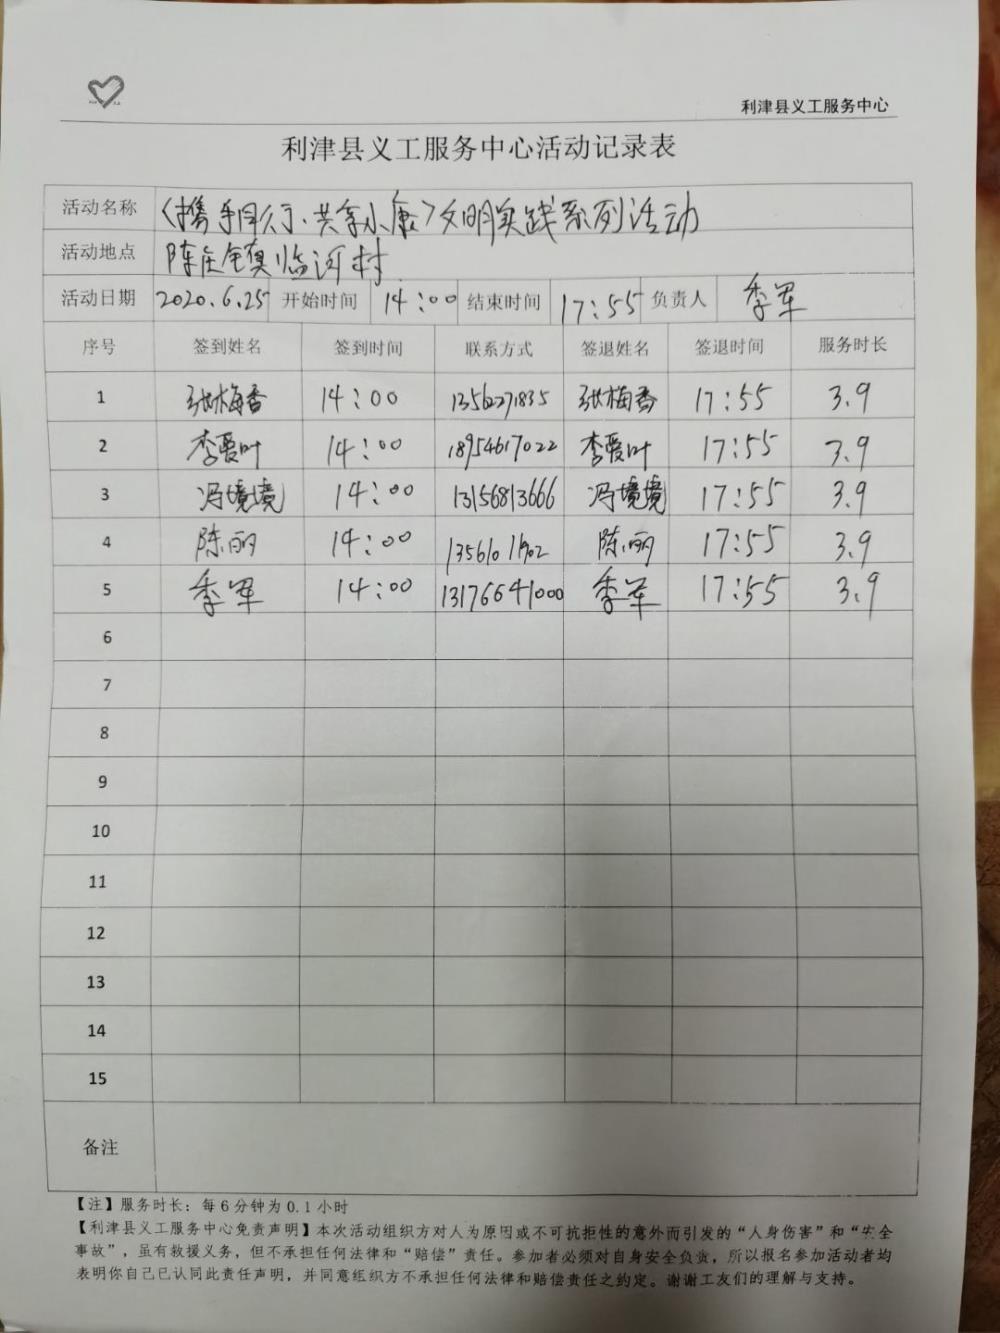 利津县义工服务中心
利津县义工服务中心活动记录表
活动名称 〈携手同行、共享小康〉文明实践系列活动
活动地点 陈庄镇临河村
活动日期 2020.6.25 开始时间 14:00 结束时间 17:55 负责人 季军
序号 签到姓名 签到时间 联系方式 签退姓名 签退时间 服务时长
1 张梅香 14:00 13562271835 张梅香 17:55 3.9
2 李爱叶 14:00 18954617022 李爱叶 17:55 3.9
3 冯境境 14:00 13156813666 冯境境 17:55 3.9
4 陈丽 14:00 陈丽 17:55 3.9
5 季军 14:00 13176641000 季军 17:55 3.9
6
7
8
9
10
11
12
13
14
15
备注
【注】服务时长：每6分钟为0.1小时
【利津县义工服务中心免责声明】本次活动组织方对人为原因或不可抗拒性的意外而引发的“人身伤害”和“安全
事故”，虽有救援义务，但不承担任何法律和“赔偿”责任。参加者必须对自身安全负责，所以报名参加活动者均
表明你自己已认同此责任声明，并同意组织方不承担任何法律和赔偿责任之约定。谢谢工友们的理解与支持。